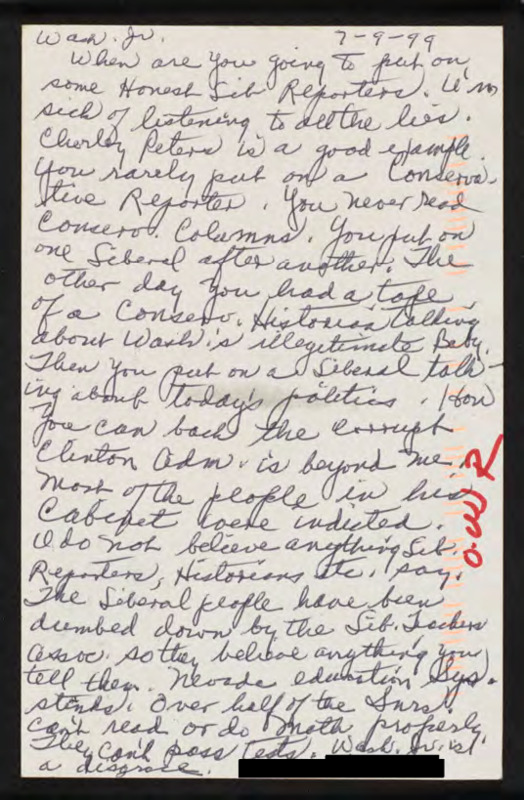 Wash. Jr. 7-9-99
When are you going to put on
some Honest Lib Reporters. I'm
sick of listening to all the lies.
Charley Peters is a good example.
You rarely put on a Conserva-
tive Reporter. You never read
Conserv. Columns. You put on
one Liberal after another. The
other day you had a tape
of a Conserv. Historian talking
about Wash's illegitimate Baby.
Then you put on a Liberal talk-
ing about today's politics. How
you can back the corrupt
Clinton Adm. is beyond me.
Most of the people in his
Cabinet were indicted.
I do not believe anything Lib.
Reporters, Historians etc. say.
The Liberal people have been
dumbed down by the Lib. Teachers
Assoc. so they believe anything you
tell them. Nevada education Sys.
stinks. Over half of the
can't read or do math properly.
They can't pass Tests. Wash. Jr. is
a disgrace.
OWR